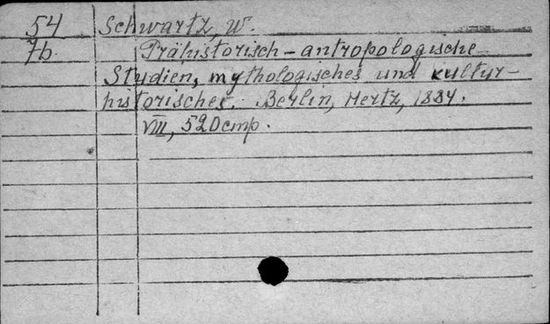 54 Schwartz, W.
7b. Prähistorisch-antropologische
Studien, mythologisches und kultur-
historisches. Berlin, Hertz, 1884.
VIII, 520 cmp.